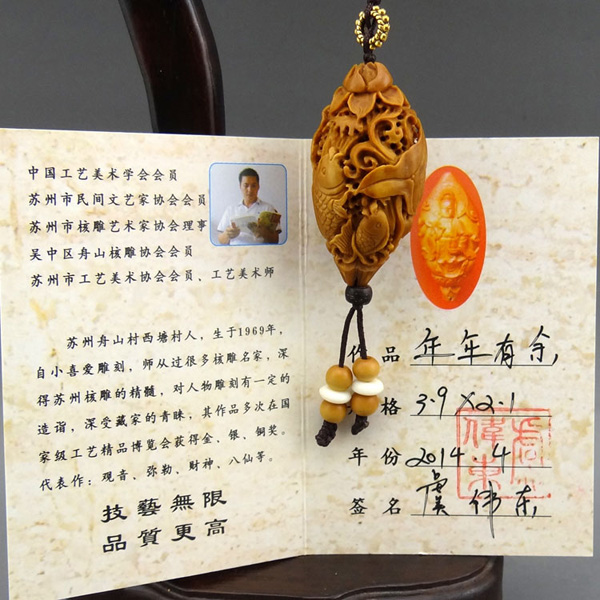 中国工艺美术学会会员
苏州市民间文艺家协会会员
苏州市核雕艺术家协会理事
吴中区舟山核雕协会会员
苏州市工艺美术协会会员、工艺美术师
苏州舟山村西塘村人，生于1969年，
自小喜爱雕刻，师从过很多核雕名家，深
得苏州核雕的精髓，对人物雕刻有一定的
造诣，深受藏家的青睐，其作品多次在国
家级工艺精品博览会获得金、银、铜奖。
代表作：观音、弥勒、财神、八仙等。
技藝無限
品質更高
作品 年年有余
格 3.9×2.1
年份 2014.4
签名 虞伟东